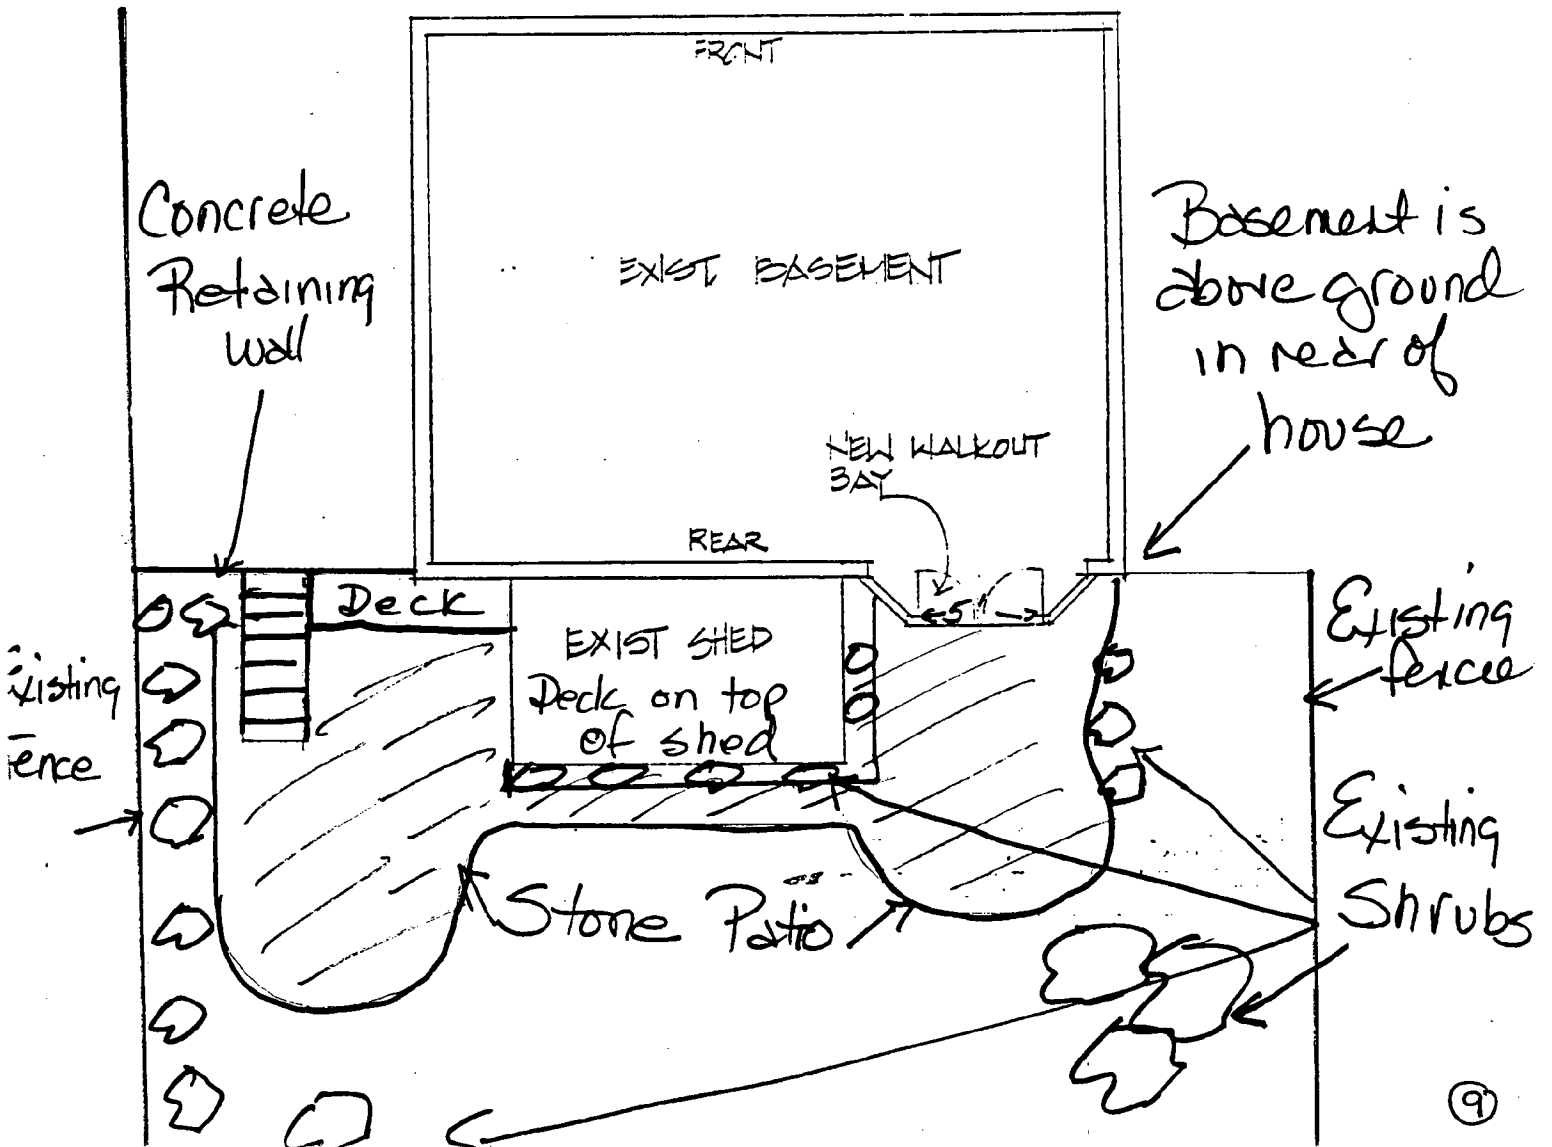 FRONT
Concrete
Retaining
Wall
EXIST. BASEMENT
Basement is
above ground
in rear of
house
NEW WALKOUT
BAY
REAR
5'
Deck
EXIST SHED
Deck on top
of shed
Existing
fence
Existing
Fence
Existing
Shrubs
Stone Patio
9